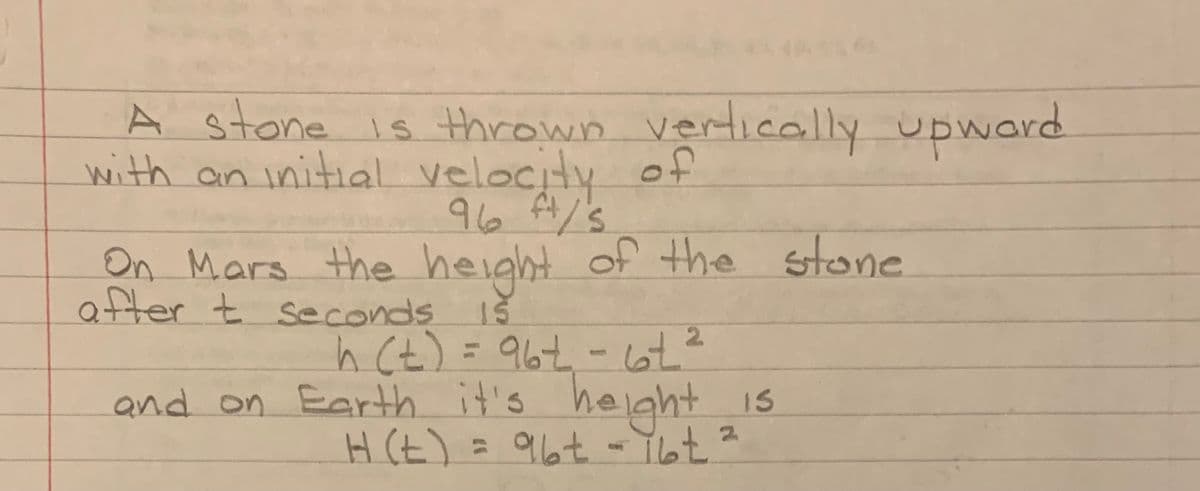 A stone is thrown vertically upward
with an initial velocity of
96 ft/s
On Mars the height of the stone
after t seconds is
h(t) = 96t - 6t²
and on Earth it's height is
H(t) = 96t - 16t²